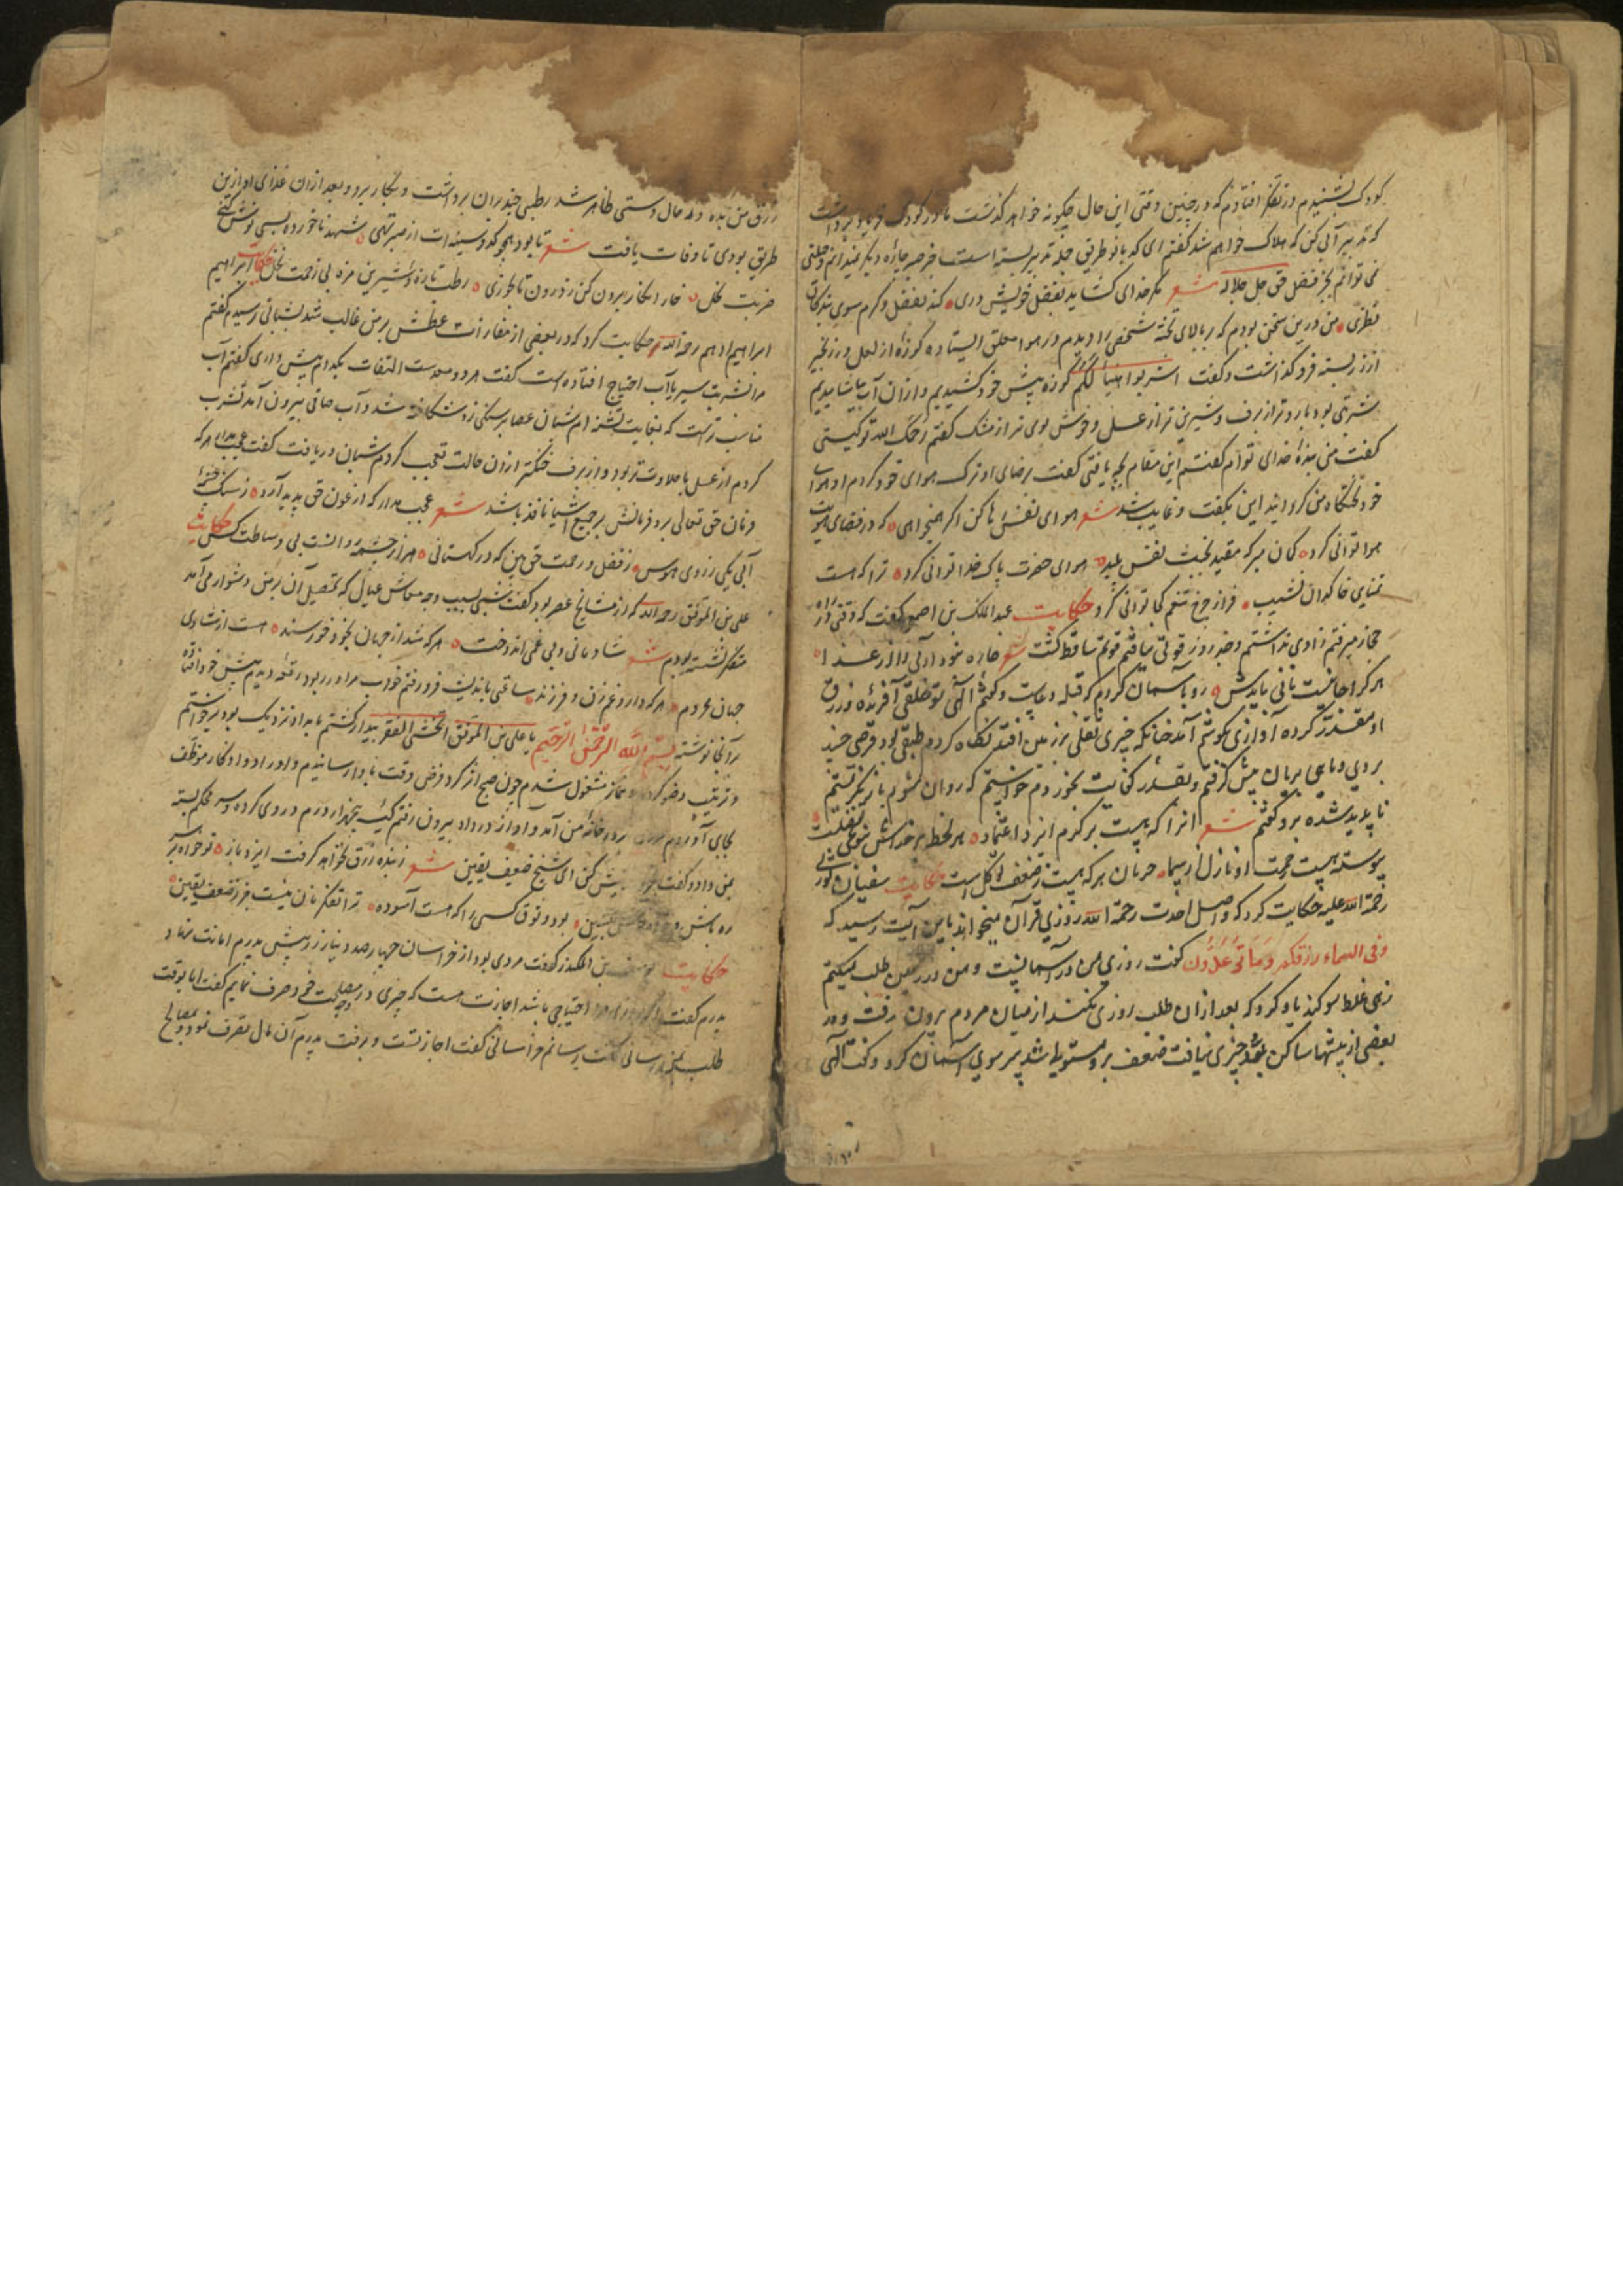 کودک بنشنیدم و در تفکر افتادم که در چنین وقتی این حال چگونه خواهد گذشت مادر کودک فریاد برداشت
که تدبیر آبی کن که هلاک خواهم شد گفتم ای کدبانو طریق جمله تدبیر بسته است جز صبر چاره دیگر نمیدانم و حیلتی
نمی توانم بجز فضل حق جل جلاله شعر مگر خدای گشاید بفضل خویش دری کند بفضل و کرم سوی بندگان
نظری من درین سخن بودم که بر بالای تخته شخصی را دیدم در هوا معلق ایستاده کوزه از لعل و زنجیر
از زر بسته فرو گذاشت و گفت اشربوا هنیأ لکم کوزه پیش خود کشیدیم و از ان آب بیاشامیدیم
شربتی بود باردتر از برف و شیرین تر از عسل و خوش بوی تر از مشک گفتم رحمک الله تو کیستی
گفت من بنده خدای توام گفتم این مقام بچه یافتی گفت برضای او ترک هوای خود کردم او هوا
خود تختگاه من گردانید این بگفت و غایب شد شعر هوای نفس رها کن اگر همیخواهی که در فضای هویت
هوا توانی کرد گمان مبر که مقید بخبث نفس پلید هوای حضرت پاک خدا توانی کرد ترا که هست
تمنای خاکدان نشیب فراز چرخ تنعم کجا توانی کرد حکایت عبد الملک بن اصمعی گفت که وقتی در راه
حجاز میرفتم زادی نداشتم و چند روز قوتی نیافتم قوتم ساقط گشت شعر چاره نبود آدمی را از غذا
هر کرا جانیست نانی بایدش رو بآسمان کردم که قبله دعاست و گفتم الهی تو خلقی آفریده و رزق
او مقدر کرده آوازی بگوشم آمد چنانکه چیزی ثقلی بر زمین افتد نگاه کردم طبقی بود قرصی چند
بر وی و ماهی بریان پیش گرفتم و بقدر کفایت بخوردم خواستم که روان شوم باز نگریستم
ناپدید شده بود گفتم شعر انرا که هست بر کرم ایزد اعتماد هر لحظه بر خداش تنوعی تفضلست
پیوسته هست رحمت او نازل از سما حرمان هر که هست ز ضعف توکل است حکایت سفیان ثوری
رحمة الله علیه حکایت کرد که واصل احدب رحمة الله روزی قرآن میخواند باین آیت رسید که
وفی السماء رزقکم وما توعدون گفت روزی من در آسمانست و من در زمین طلب میکنم
زهی غلط سوگند یاد کرد که بعد ازان طلب روزی نکند از میان مردم برون رفت و در
بعضی از بیشتها ساکن شد چیزی نیافت ضعف برو مستولی شد سر سوی آسمان کرد و گفت الهی
رزق من بده در حال دستی ظاهر شد رطبی چند بران برداشت و بکار برد و بعد ازان غذای او ازین
طریق بودی تا وفات یافت شعر تا بود همچو کدو سینه ات از صبر تهی شهد ناخورده بسی نوش کنی
ضربت نخل خار انکار برون کن ز درون تا بخوری رطب تازه و شیرین مزه بی زحمت نخل حکایت ابراهیم
ابراهیم ادهم رحمه الله حکایت کرد که در بعضی از مفازات عطش بر من غالب شد بشبانی رسیدم گفتم
مرا بشربت شیر یا آب احتیاج افتاده است گفت هر دو موجودست التفات بکدام بیش داری گفتم آب
مناسب ترست که بغایت تشنه ام شبان عصا بر سنگی زد شکافته شد و آب صافی بیرون آمد تشرب
کردم از عسل با حلاوت تر بود و از برف خنکتر ازان حالت تعجب کردم شبان دریافت گفت عجب مدار هر که
فرمان حق تعالی برد فرمانش بر جمیع اشیا نافذ باشد شعر عجب مدار که از عون حق پدید آرد ز سنگ
آبی یکی ز روی هوس ز فضل و رحمت حق بین که در کهستانی هزار چشمه روانست بی وساطت کس حکایت
علی بن الموفق رحمه الله که از مشایخ عصر بود گفت شبی بسبب وجه معاش عیال که تحصیل آن بر من دشوار می آمد
متفکر نشسته بودم شعر شادمانی و بی غمی اندوخت هر که شد از جهان بخود خورسند هست از شادی
جهان محروم هر که دارد غم زن و فرزند ساعتی باندیشه فرو رفتم خواب مرا در ربود رقعه دیدم پیش خود افتاده
بر آنجا نوشته بسم الله الرحمن الرحیم یا علی بن الموفق اتخشی الفقر بیدار گشتم بامداد نزدیک بود برخواستم
و ترتیب وضو کرده و نماز مشغول شدم چون صبح آغاز کرد فرض وقت بادا رسانیدم و اوراد و اذکار موظف
بجای آوردم مردی بدر خانه من آمد و آواز در داد بیرون رفتم کیسه پنجهزار درم در وی کرده و سر محکم بسته
بمن داد و گفت پیش کن ای شیخ ضعیف یقین شعر ز بنده رزق نخواهد گرفت ایزد باز تو خواه بر
ره باش و بود وثوق کسی را که هست آسوده ترا تفکر نان نیست جز ز ضعف یقین
حکایت بن المنکدر گفت مردی بود از خراسان چهار صد دینار زر پیش پدرم امانت نهاد و
پدرم گفت احتیاجی باشد اجازت هست که چیزی در مصلحت خود صرف نمایم گفت اما بوقت
طلب بمن رسانی گفت برسانم خراسانی گفت اجازتست و برفت پدرم آن مال تصرف نمود و بمصالح